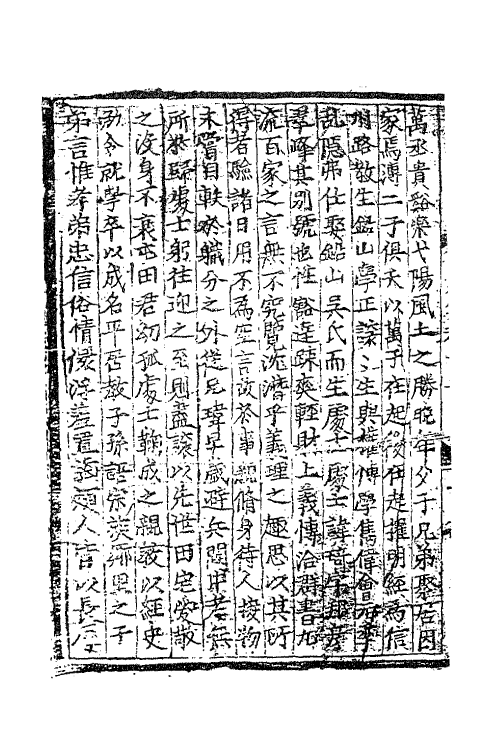 萬丞貴谿樂弋陽風土之勝晚年夕于兄弟聚居因
家焉溥二子俱夭以萬子在起後在起擢明經為信
州路教生鉛山學正讓讓生與權博學雋偉會元季
亂隱弗仕娶鉛山吳氏而生處士處士諱
羣峰其別號也性豁達疎爽輕財上義博洽群書九
流百家之言無不究覽沈潛乎義理之趣思以其所
得者驗諸日用不為空言故於事親脩身待人接物
未嘗自軼於軄分之外從兄瑋早歲避兵閩中老無
所依歸處士躬往迎之至則盡讓以先世田宅愛敬
之沒身不衰屯田君幼孤處士鞠成之親敎以經史
勗令就學卒以成名平居敎子孫語宗族鄉里之子
弟言惟孝弟忠信俗情儇浮羞置齒頰人皆以長